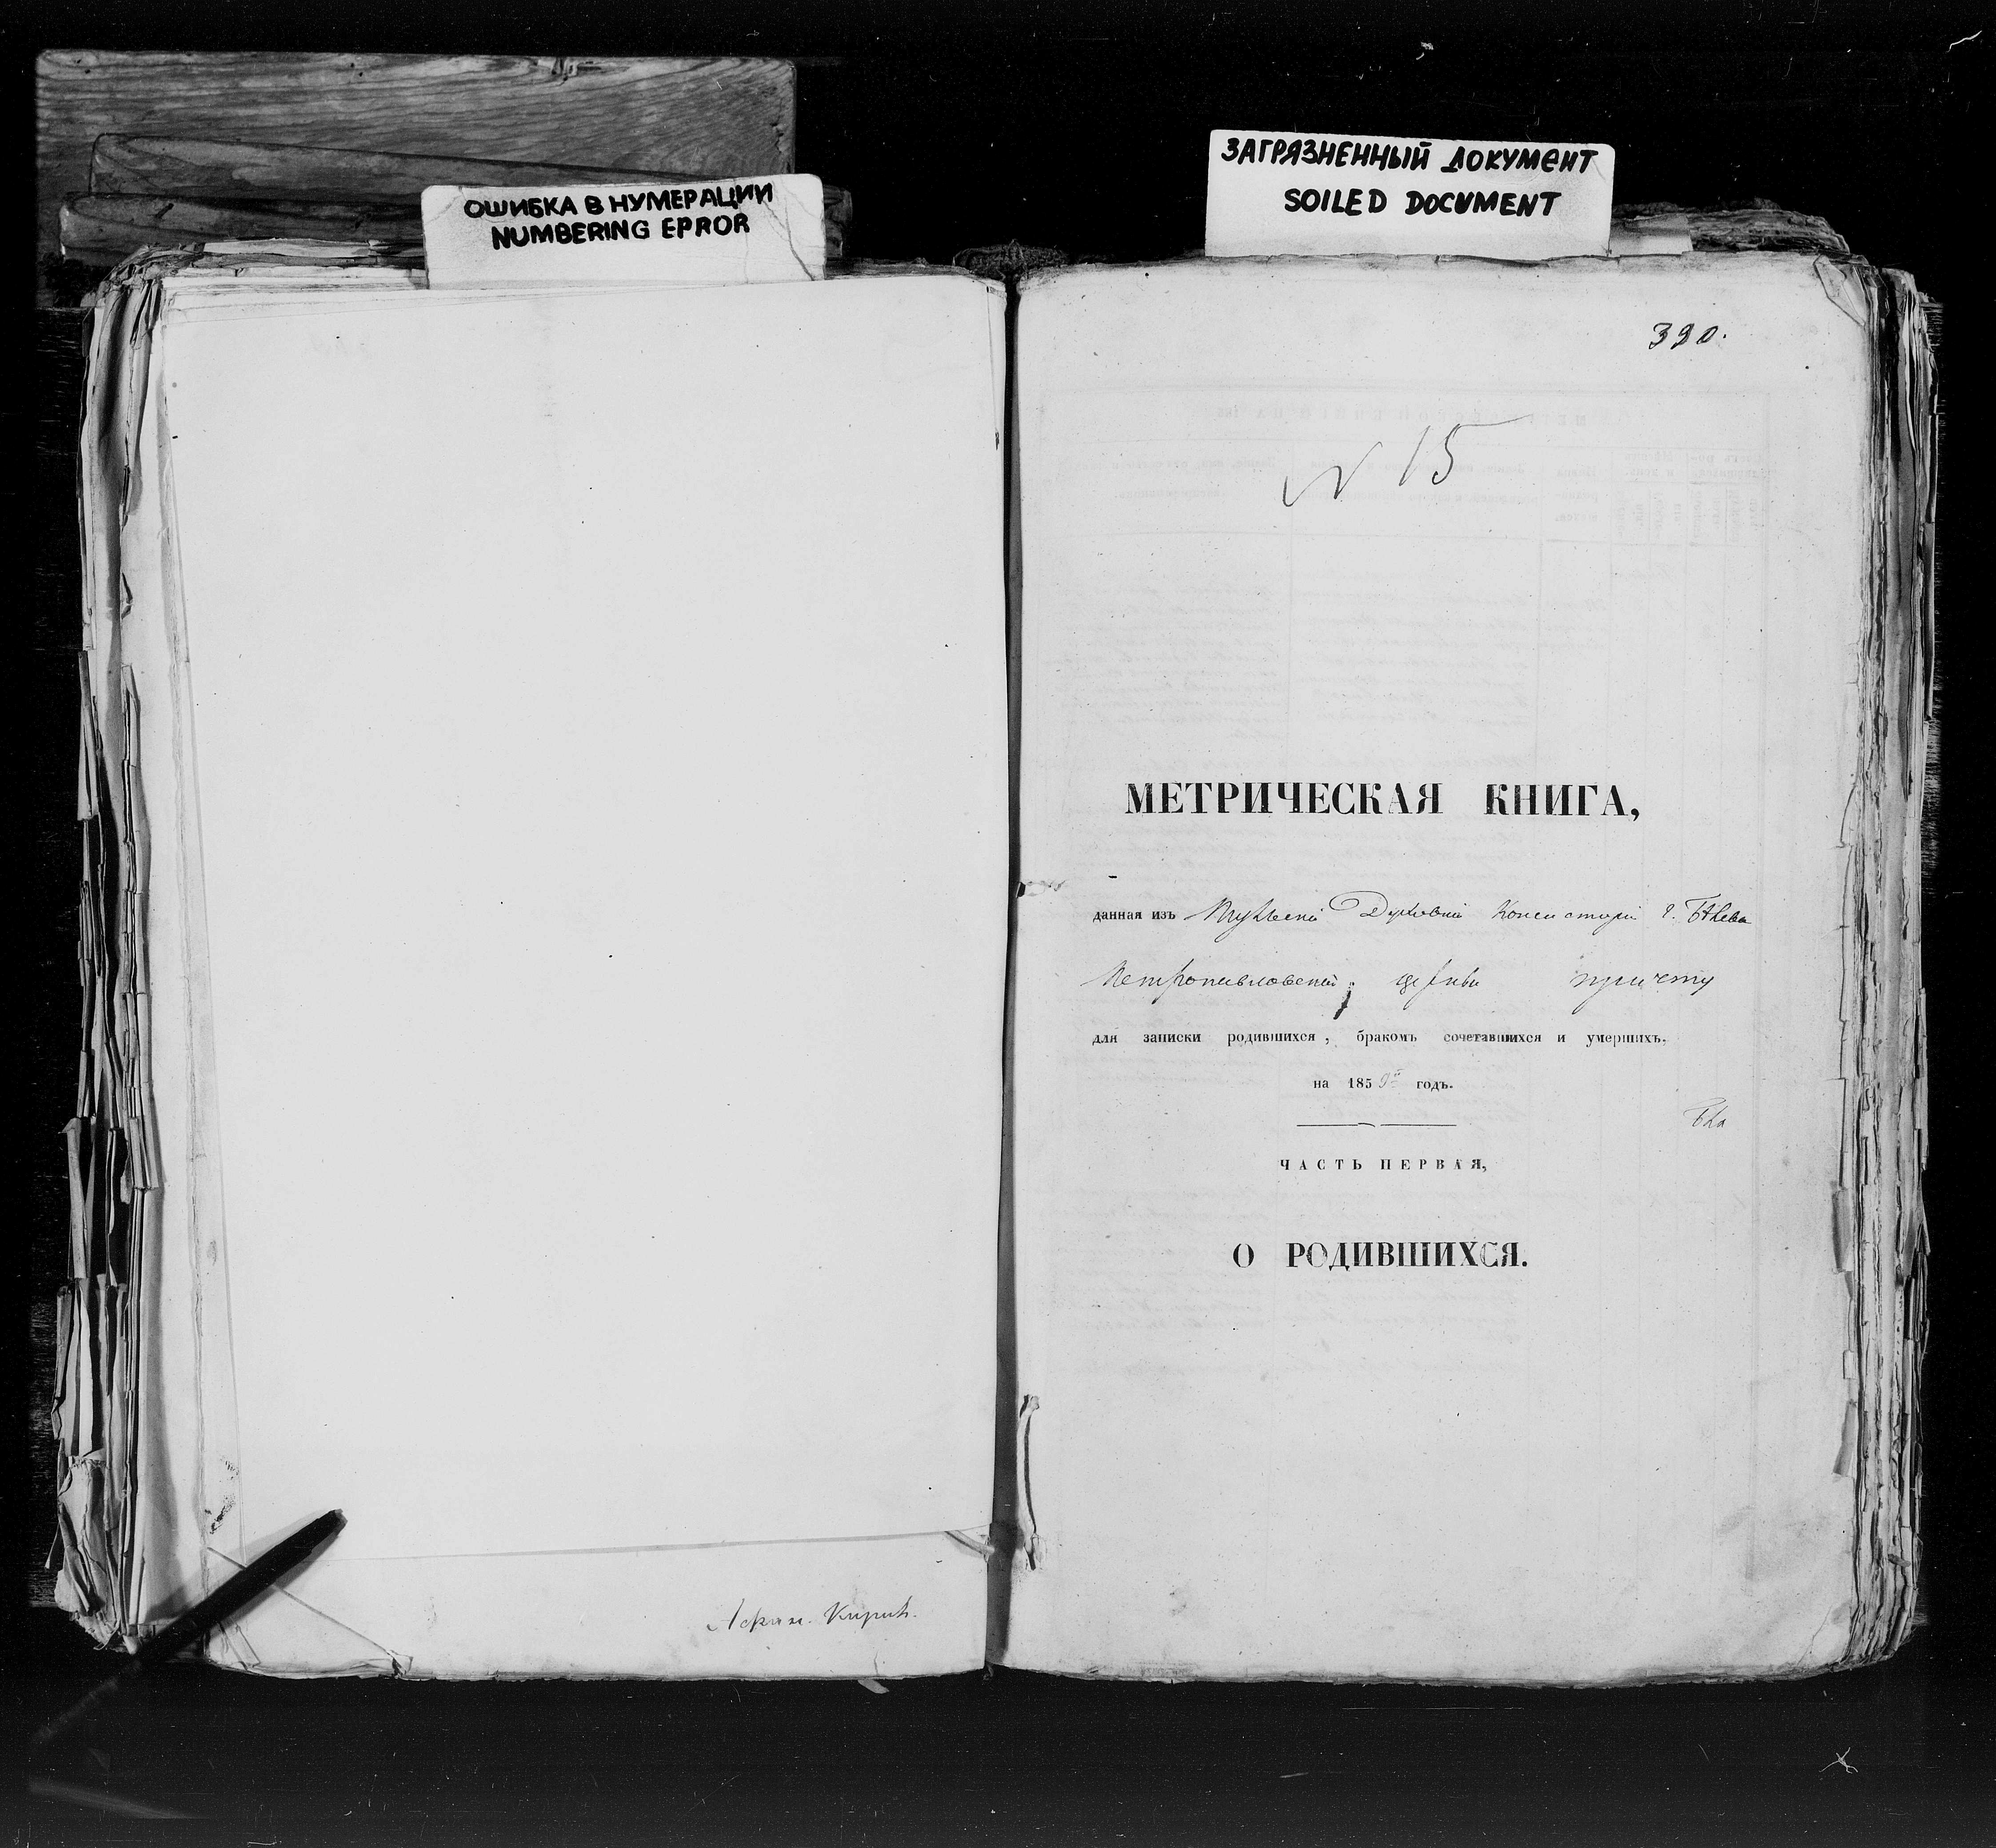 ОШИБКА В НУМЕРАЦИИ
NUMBERING EPROR
ЗАГРЯЗНЕННЫЙ ДОКУМЕНТ
SOILED DOCUMENT
390.
N 15
МЕТРИЧЕСКАЯ КНИГА,
данная изъ Тульской Духовной Консисторіи г. Бѣлева
Петропавловской церкви причту
для записки родившихся, бракомъ сочетавшихся и умершихъ.
на 1859й годъ.
ЧАСТЬ ПЕРВАЯ,
О РОДИВШИХСЯ.